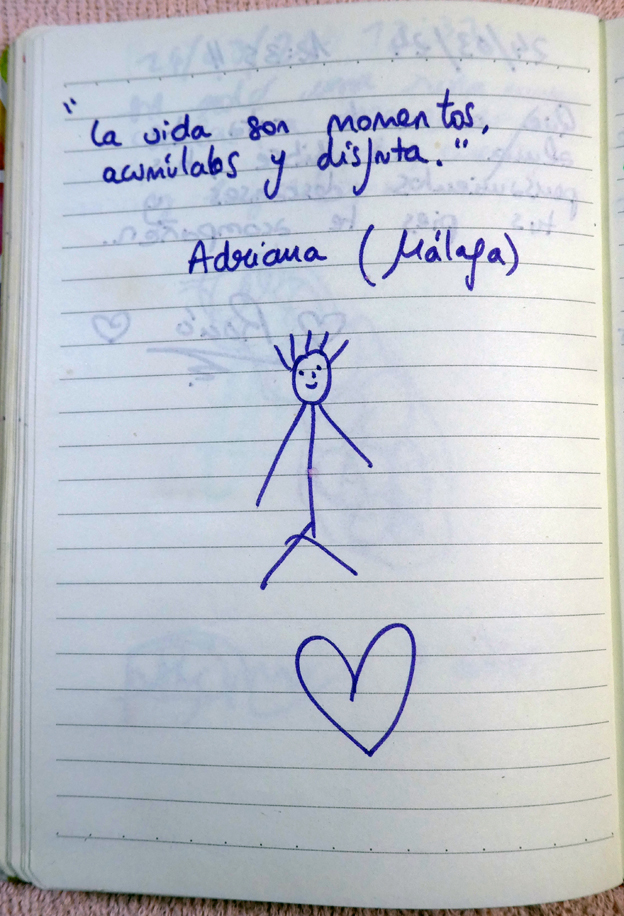 "La vida son momentos,
acumúlalos y disfruta."
Adriana (Málaga)